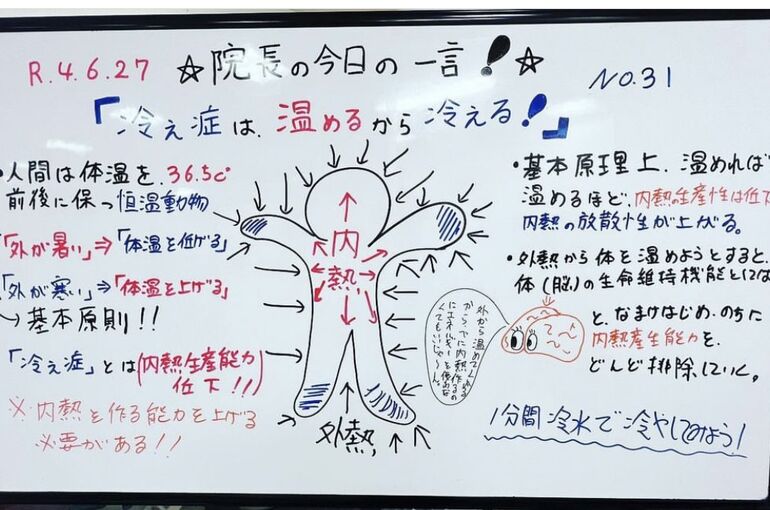 R.4.6.27 ☆院長の今日の一言!☆ NO.31
「冷え症は、温めるから冷える!」
・人間は体温を、36.5℃
前後に保つ恒温動物
「外が暑い」⇒「体温を下げる」
「外が寒い」⇒「体温を上げる」
→基本原則!!
「冷え症」とは(内熱生産能力
低下!!)
※内熱を作る能力を上げる
必要がある!!
内熱
外熱
・基本原理上、温めれば
温めるほど、内熱生産性は低下
内熱の放散性が上がる。
・外熱から体を温めようとすると、
体(脳)の生命維持機能としては
と、なまけはじめ、のちに
内熱産生能力を、
どんどん排除していく。
外から温めてくれる
から
内熱作るの
にエネルギーを使わな
くてもいいじゃ〜ん。
1分間冷水で冷やしてみよう!